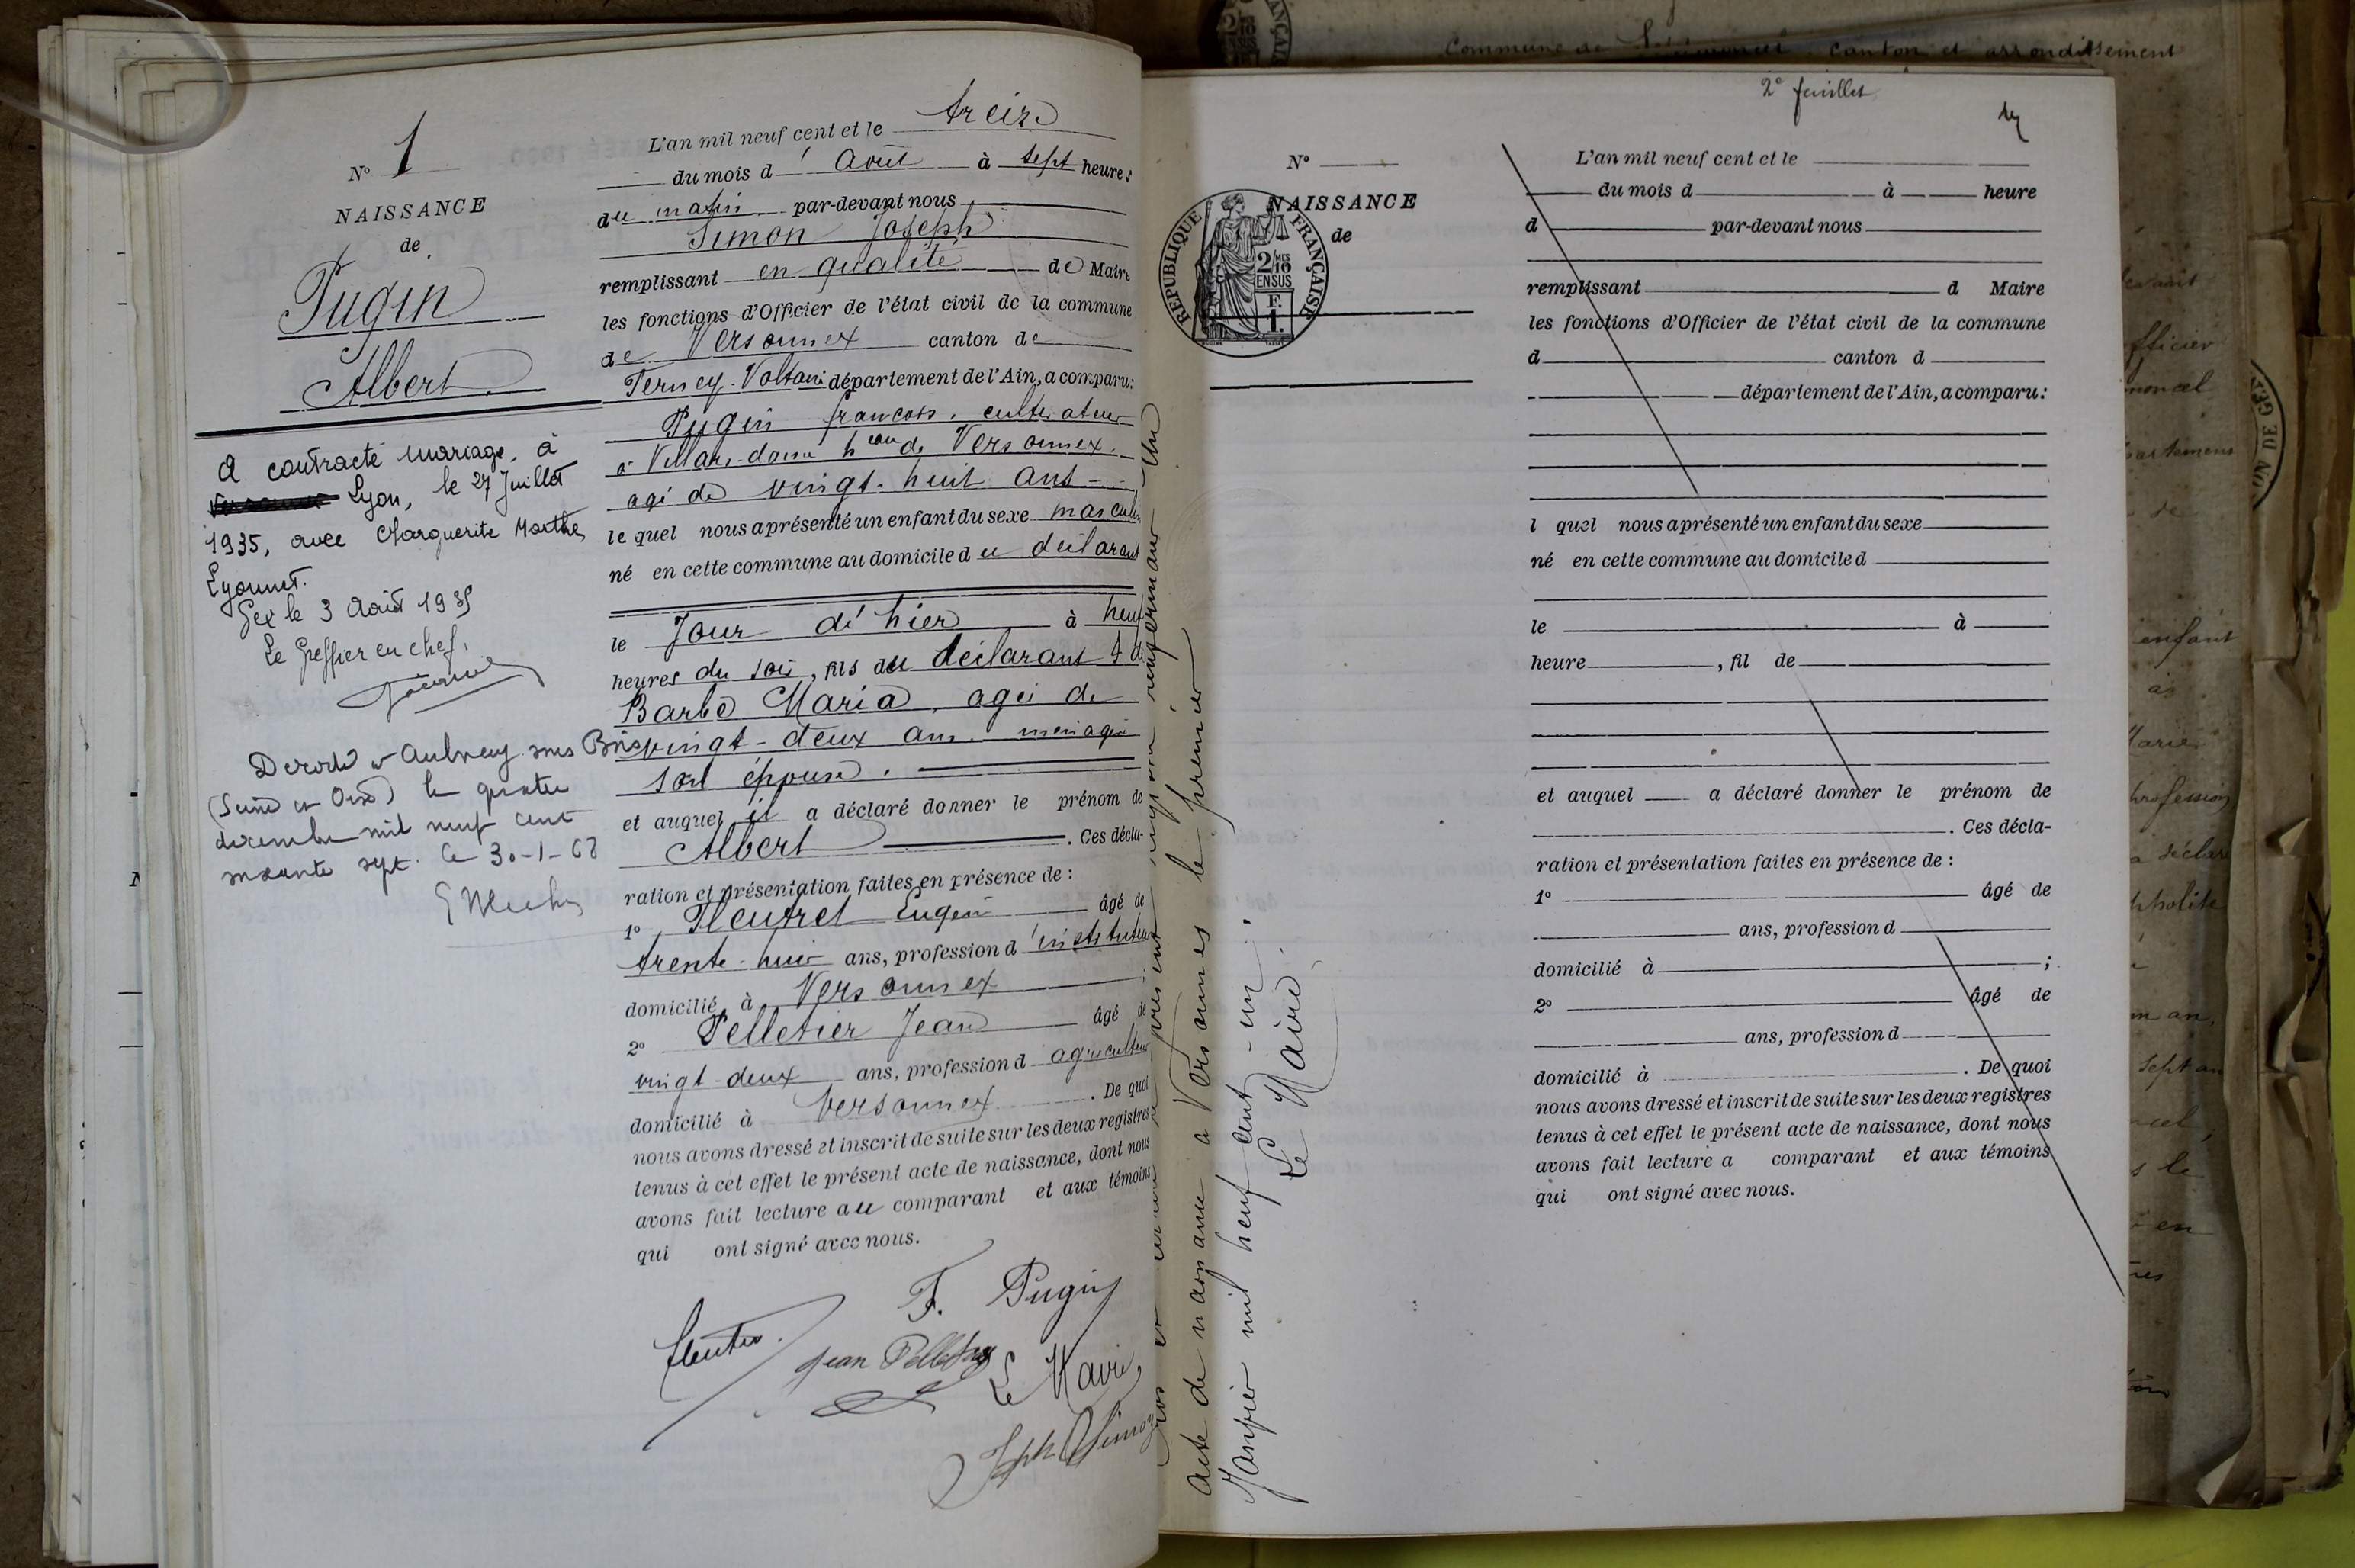 Commune de canton et arrondissement
N° 1
NAISSANCE
de
Pugin
Albert
A contracté mariage, à
Lyon, le 27 Juillet
1935, avec Marguerite Marthe
Lyonnet.
Gex le 3 Août 1935
Le Greffier en chef,
Décédé à Aulnay sous Bois
(Seine et Oise) le quatre
décembre mil neuf cent
soixante sept. Le 30-1-68
L'an mil neuf cent et le treize
du mois d'Août à sept heures
du matin par-devant nous
Simon Joseph
remplissant en qualité de Maire
les fonctions d'Officier de l'état civil de la commune
de Versonnex canton de
Ferney-Voltaire département de l'Ain, a comparu:
Pugin françois, cultivateur
à Villars-dame h eau de Versonnex,
agé de vingt-huit ans
lequel nous a présenté un enfant du sexe masculin
né en cette commune au domicile du déclarant
le Jour d'hier à neuf
heures du soir, fils du déclarant & de
Barbe Maria, agée de
vingt-deux ans ménagère
son épouse.
et auquel il a déclaré donner le prénom de
Albert. Ces décla-
ration et présentation faites en présence de:
1° Fleutret Eugène âgé de
trente-huit ans, profession d'instituteur
domicilié à Versonnex;
2° Pelletier Jean âgé de
vingt-deux ans, profession d agriculteur
domicilié à Versonnex. De quoi
nous avons dressé et inscrit de suite sur les deux registres
tenus à cet effet le présent acte de naissance, dont nous
avons fait lecture au comparant et aux témoins
qui ont signé avec nous.
F. Pugin
Jean Pelletier
Le Maire,
Jph Simon
présent registre renfermant un
acte de naissance a Versonnex le premier
Janvier mil neuf cent-un.
Le Maire.
2e feuillet
N°
NAISSANCE
de
REPUBLIQUE FRANÇAISE
2/10 MES
EN SUS
F.
1.
L'an mil neuf cent et le
du mois d à heure
d par-devant nous
remplissant d Maire
les fonctions d'Officier de l'état civil de la commune
d canton d
département de l'Ain, a comparu:
l quel nous a présenté un enfant du sexe
né en cette commune au domicile d
le à
heure, fil de
et auquel a déclaré donner le prénom de
. Ces décla-
ration et présentation faites en présence de:
1° âgé de
ans, profession d
domicilié à ;
2° âgé de
ans, profession d
domicilié à . De quoi
nous avons dressé et inscrit de suite sur les deux registres
tenus à cet effet le présent acte de naissance, dont nous
avons fait lecture a comparant et aux témoins
qui ont signé avec nous.